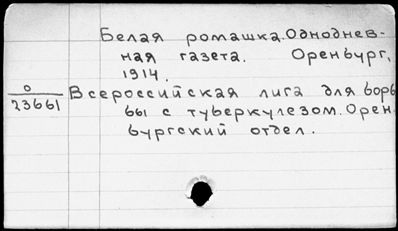 Белая ромашка. Одноднев-
ная газета. Оренбург,
1914.
О
23661
Всероссийская лига для борь
бы с туберкулезом. Орен
бургский отдел.